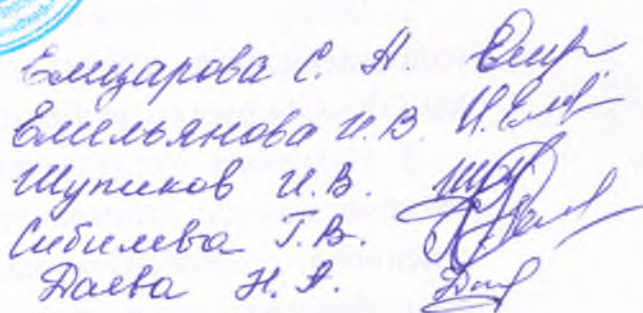 Елизарова С. А.
Емельянова И. В. И. Емел
Шупиков И. В.
Сибилева Т. В.
Даева Н. А.